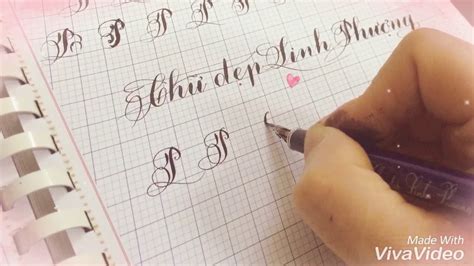 P P P P P P
Chữ đẹp Linh Phượng
P P
Made With
VivaVideo